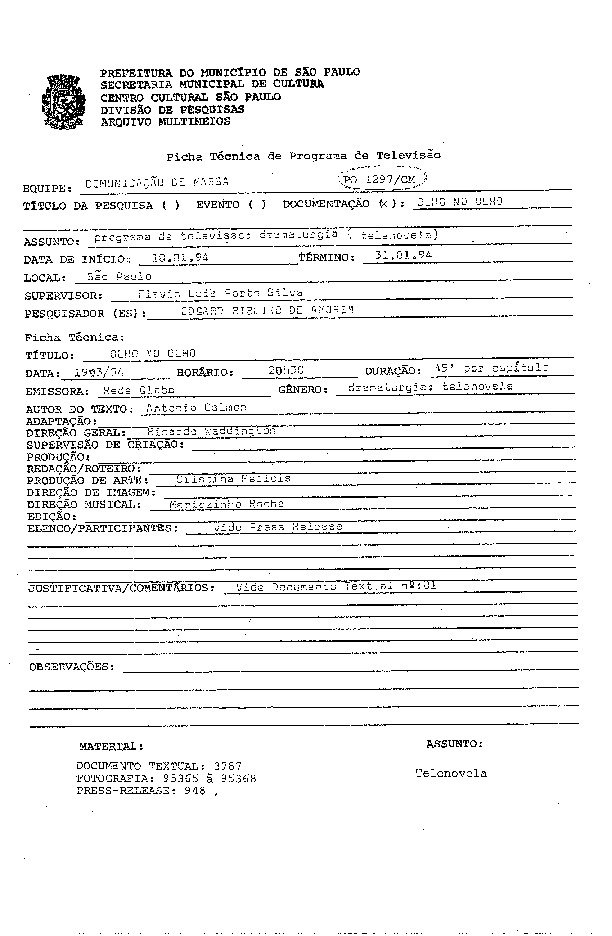 PREFEITURA DO MUNICÍPIO DE SÃO PAULO
SECRETARIA MUNICIPAL DE CULTURA
CENTRO CULTURAL SÃO PAULO
DIVISÃO DE PESQUISAS
ARQUIVO MULTIMEIOS
Ficha Técnica de Programa de Televisão
EQUIPE: COMUNICAÇÃO DE MASSA PO 1297/CM
TÍTULO DA PESQUISA ( ) EVENTO ( ) DOCUMENTAÇÃO (x): OLHO NO OLHO
ASSUNTO: programa de televisão: dramaturgia ( telenovela)
DATA DE INÍCIO: 10.01.94 TÉRMINO: 31.01.94
LOCAL: São Paulo
SUPERVISOR: Flávio Luiz Porto Silva
PESQUISADOR (ES): EDGARD RIBEIRO DE AMORIM
Ficha Técnica:
TÍTULO: OLHO NO OLHO
DATA: 1993/94 HORÁRIO: 20h00 DURAÇÃO: 45' por capítulo
EMISSORA: Rede Globo GÊNERO: dramaturgia: telenovela
AUTOR DO TEXTO: Antonio Calmon
ADAPTAÇÃO:
DIREÇÃO GERAL: Ricardo Waddington
SUPERVISÃO DE CRIAÇÃO:
PRODUÇÃO:
REDAÇÃO/ROTEIRO:
PRODUÇÃO DE ARTE: Cristina Médicis
DIREÇÃO DE IMAGEM:
DIREÇÃO MUSICAL: Mariozinho Rocha
EDIÇÃO:
ELENCO/PARTICIPANTES: Vide Press Release
JUSTIFICATIVA/COMENTÁRIOS: Vide Documento Textual nº:01
OBSERVAÇÕES:
MATERIAL: ASSUNTO:
DOCUMENTO TEXTUAL: 3767
FOTOGRAFIA: 95365 à 95368 Telenovela
PRESS-RELEASE: 948